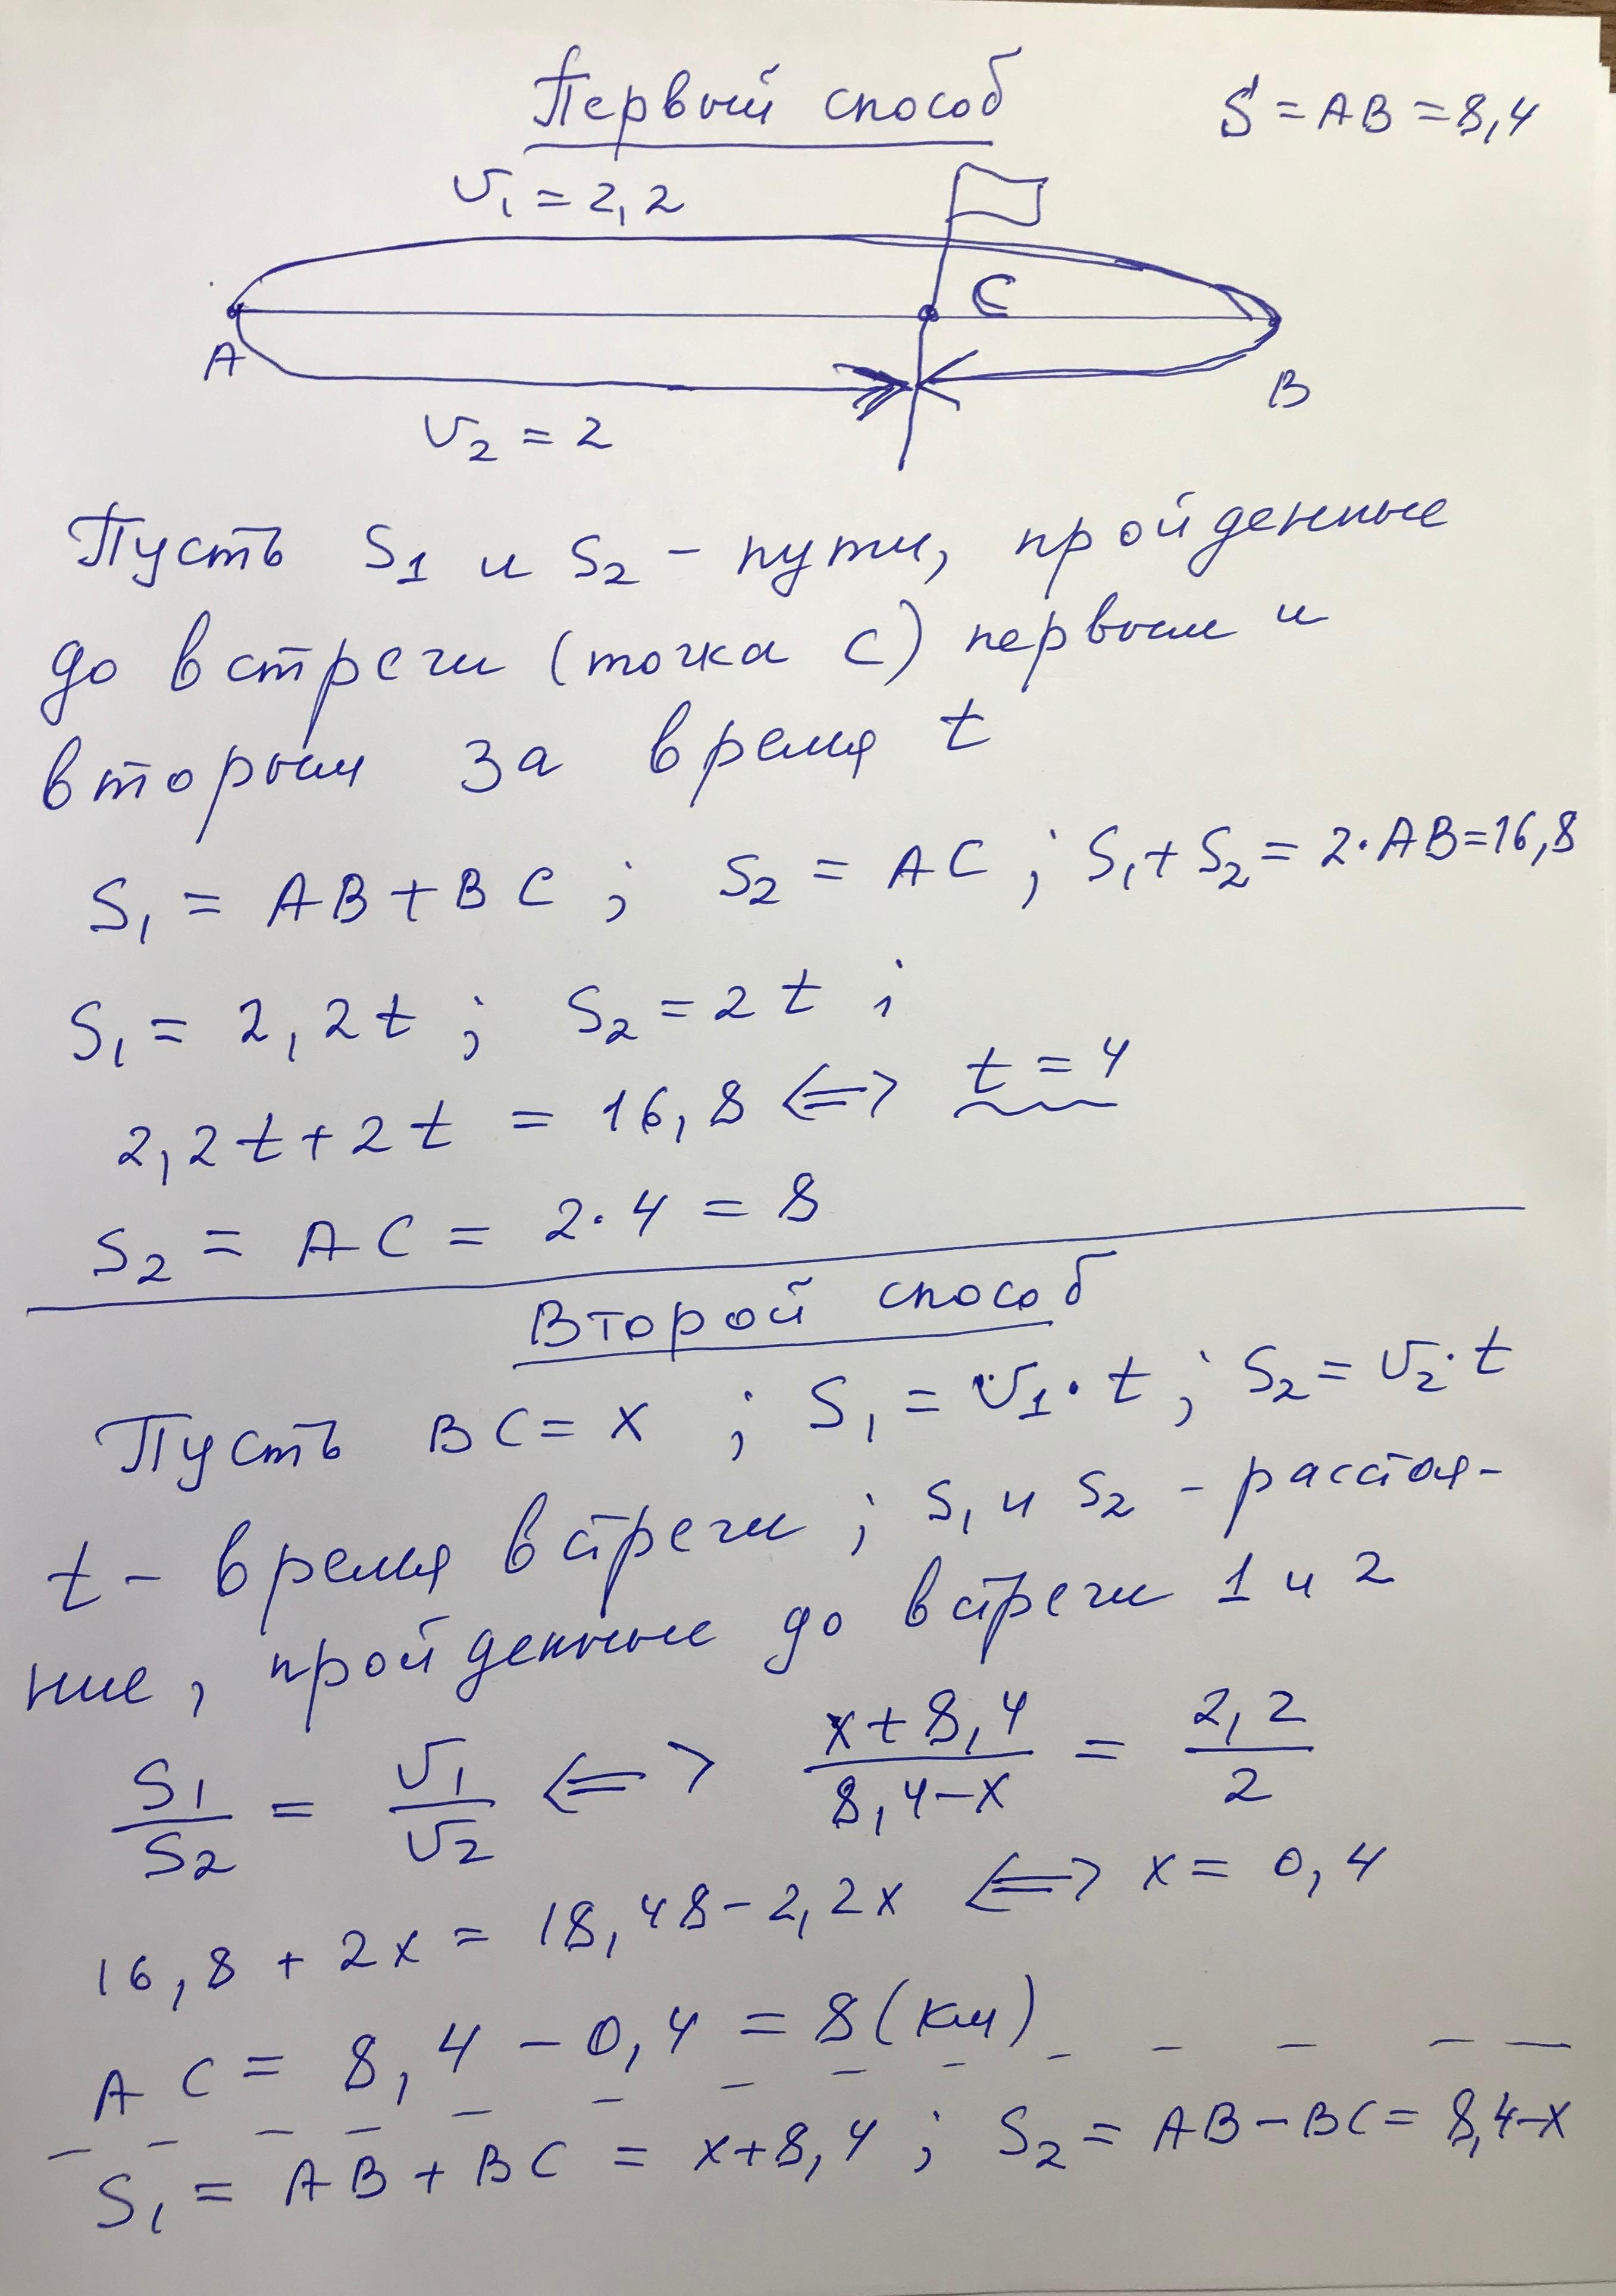 Первый способ
S = AB = 8,4
v₁ = 2,2
A
C
B
v₂ = 2
Пусть S₁ и S₂ - пути, пройденные
до встречи (точка C) первым и
вторым за время t
S₁ = AB + BC ; S₂ = AC ; S₁ + S₂ = 2·AB = 16,8
S₁ = 2,2t ; S₂ = 2t ;
2,2t + 2t = 16,8 <=> t = 4
S₂ = AC = 2·4 = 8
Второй способ
Пусть BC = x ; S₁ = v₁·t ; S₂ = v₂·t
t - время встречи ; S₁ и S₂ - расстоя-
ние, пройденные до встречи 1 и 2
S₁/S₂ = v₁/v₂ <=> (x+8,4)/(8,4-x) = 2,2/2
16,8 + 2x = 18,48 - 2,2x <=> x = 0,4
AC = 8,4 - 0,4 = 8 (км)
S₁ = AB + BC = x+8,4 ; S₂ = AB - BC = 8,4-x